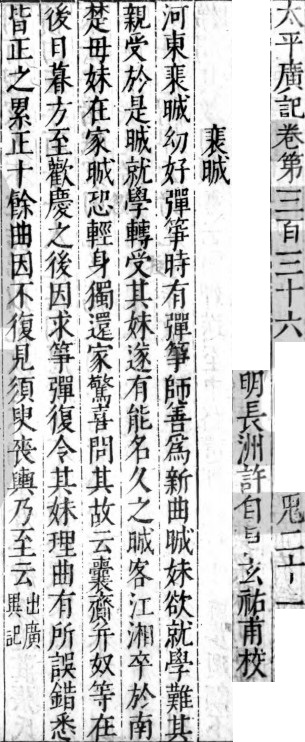 太平廣記卷第三百三十六
鬼二十一
明長洲許自昌玄祐甫校
裴䀩
河東裴䀩幼好彈箏時有彈箏師善爲新曲䀩妹欲就學難其
親受於是䀩就學轉受其妹遂有能名久之䀩客江湘卒於南
楚毋妹在家䀩恐輕身獨還家驚喜問其故云囊齎并奴等在
後日暮方至歡慶之後因求箏彈復令其妹理曲有所誤錯悉
皆正之累正十餘曲因不復見須臾喪輿乃至云出廣異記